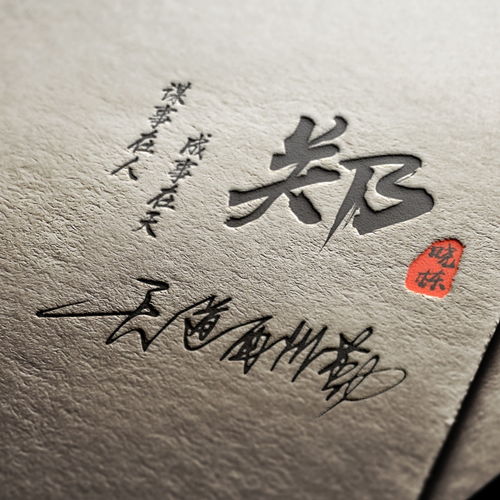 谋事在人
成事在天
郑
晓栋
天道酬勤